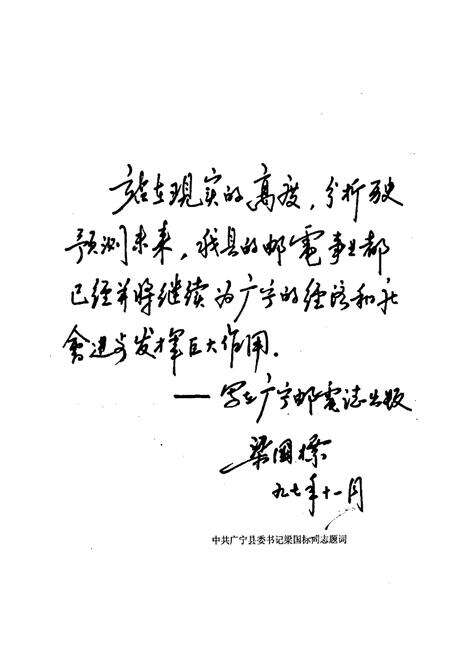 站在现实的高度，分析历史
预测未来，我县的邮電事业都
已经并将继续为广宁的经济和社
會进步发挥巨大作用。
——写在广宁邮電誌出版
梁国标
九七年十一月
中共广宁县委书记梁国标同志题词